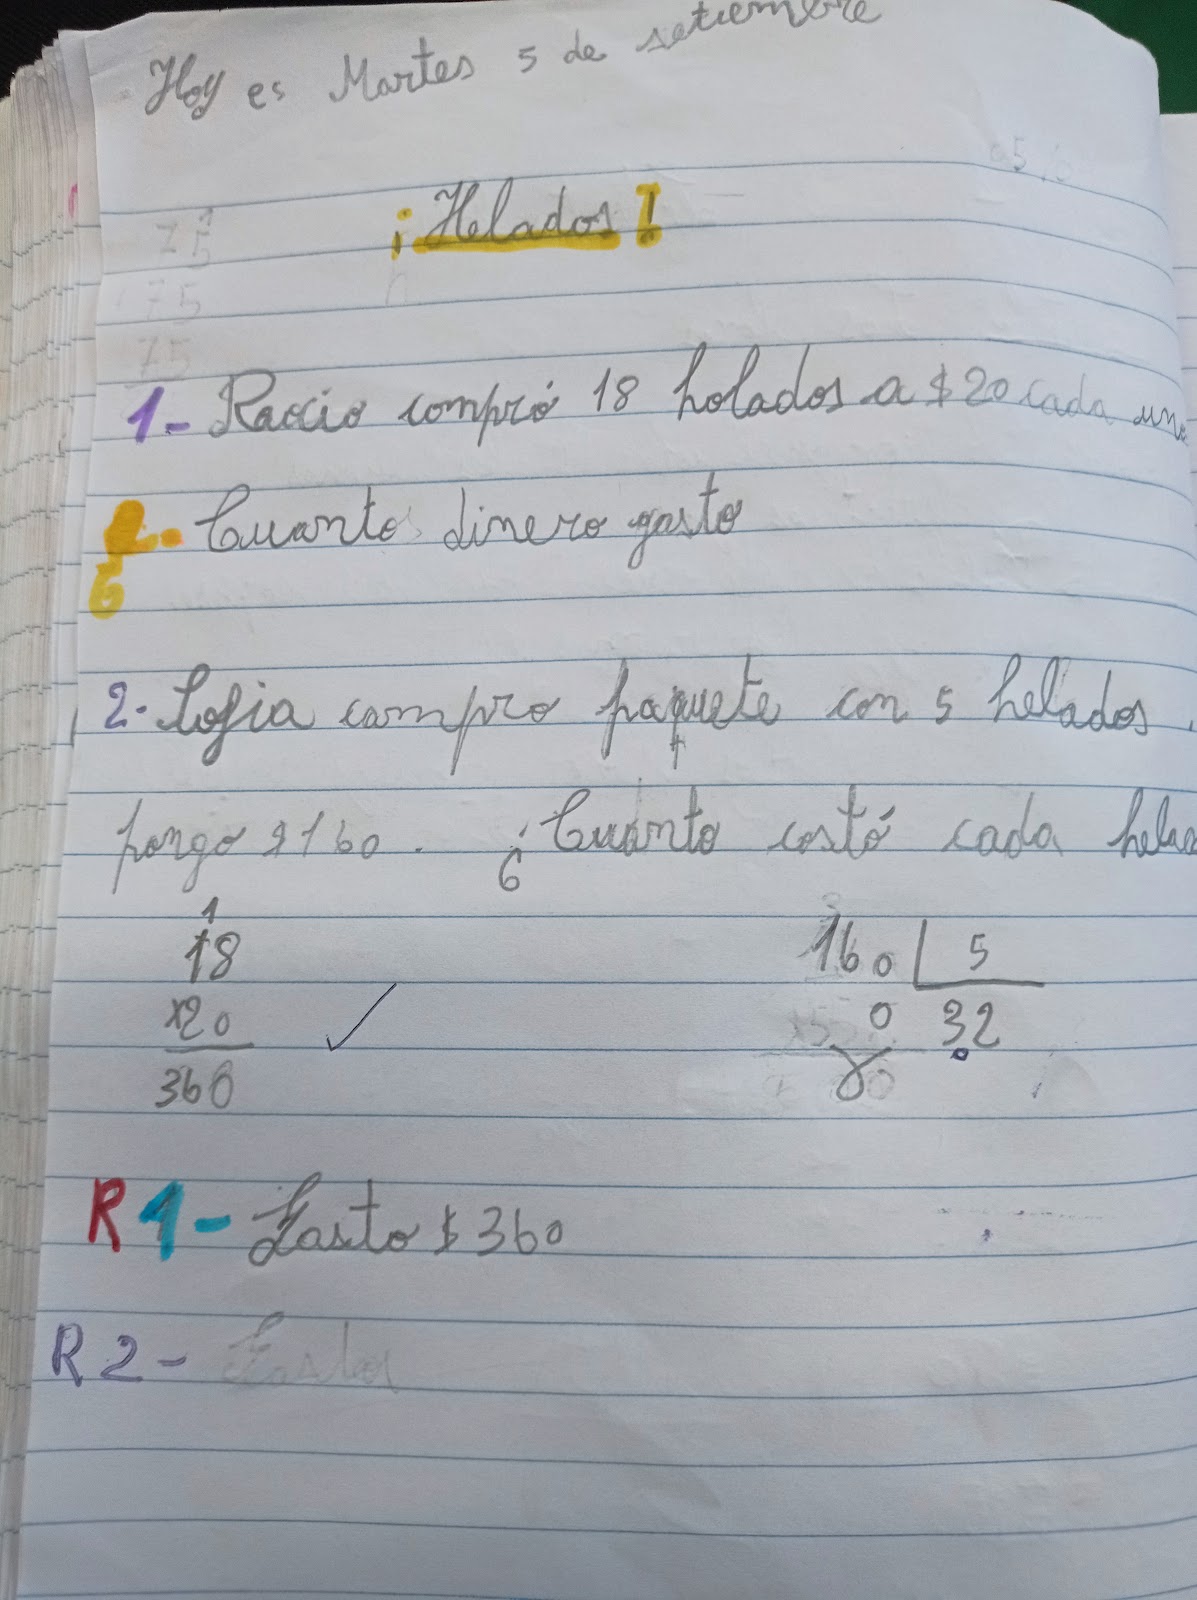 Hoy es Martes 5 de setiembre
¡Helados!
1- Rocio compró 18 holados a $20 cada uno
Cuanto dinero gasto
2- Sofia compro paquete con 5 helados
pango $160. ¿Cuánto costó cada
1
18
x20
360
160 | 5
0 32
R1- Gasto $360
R2- Gasto